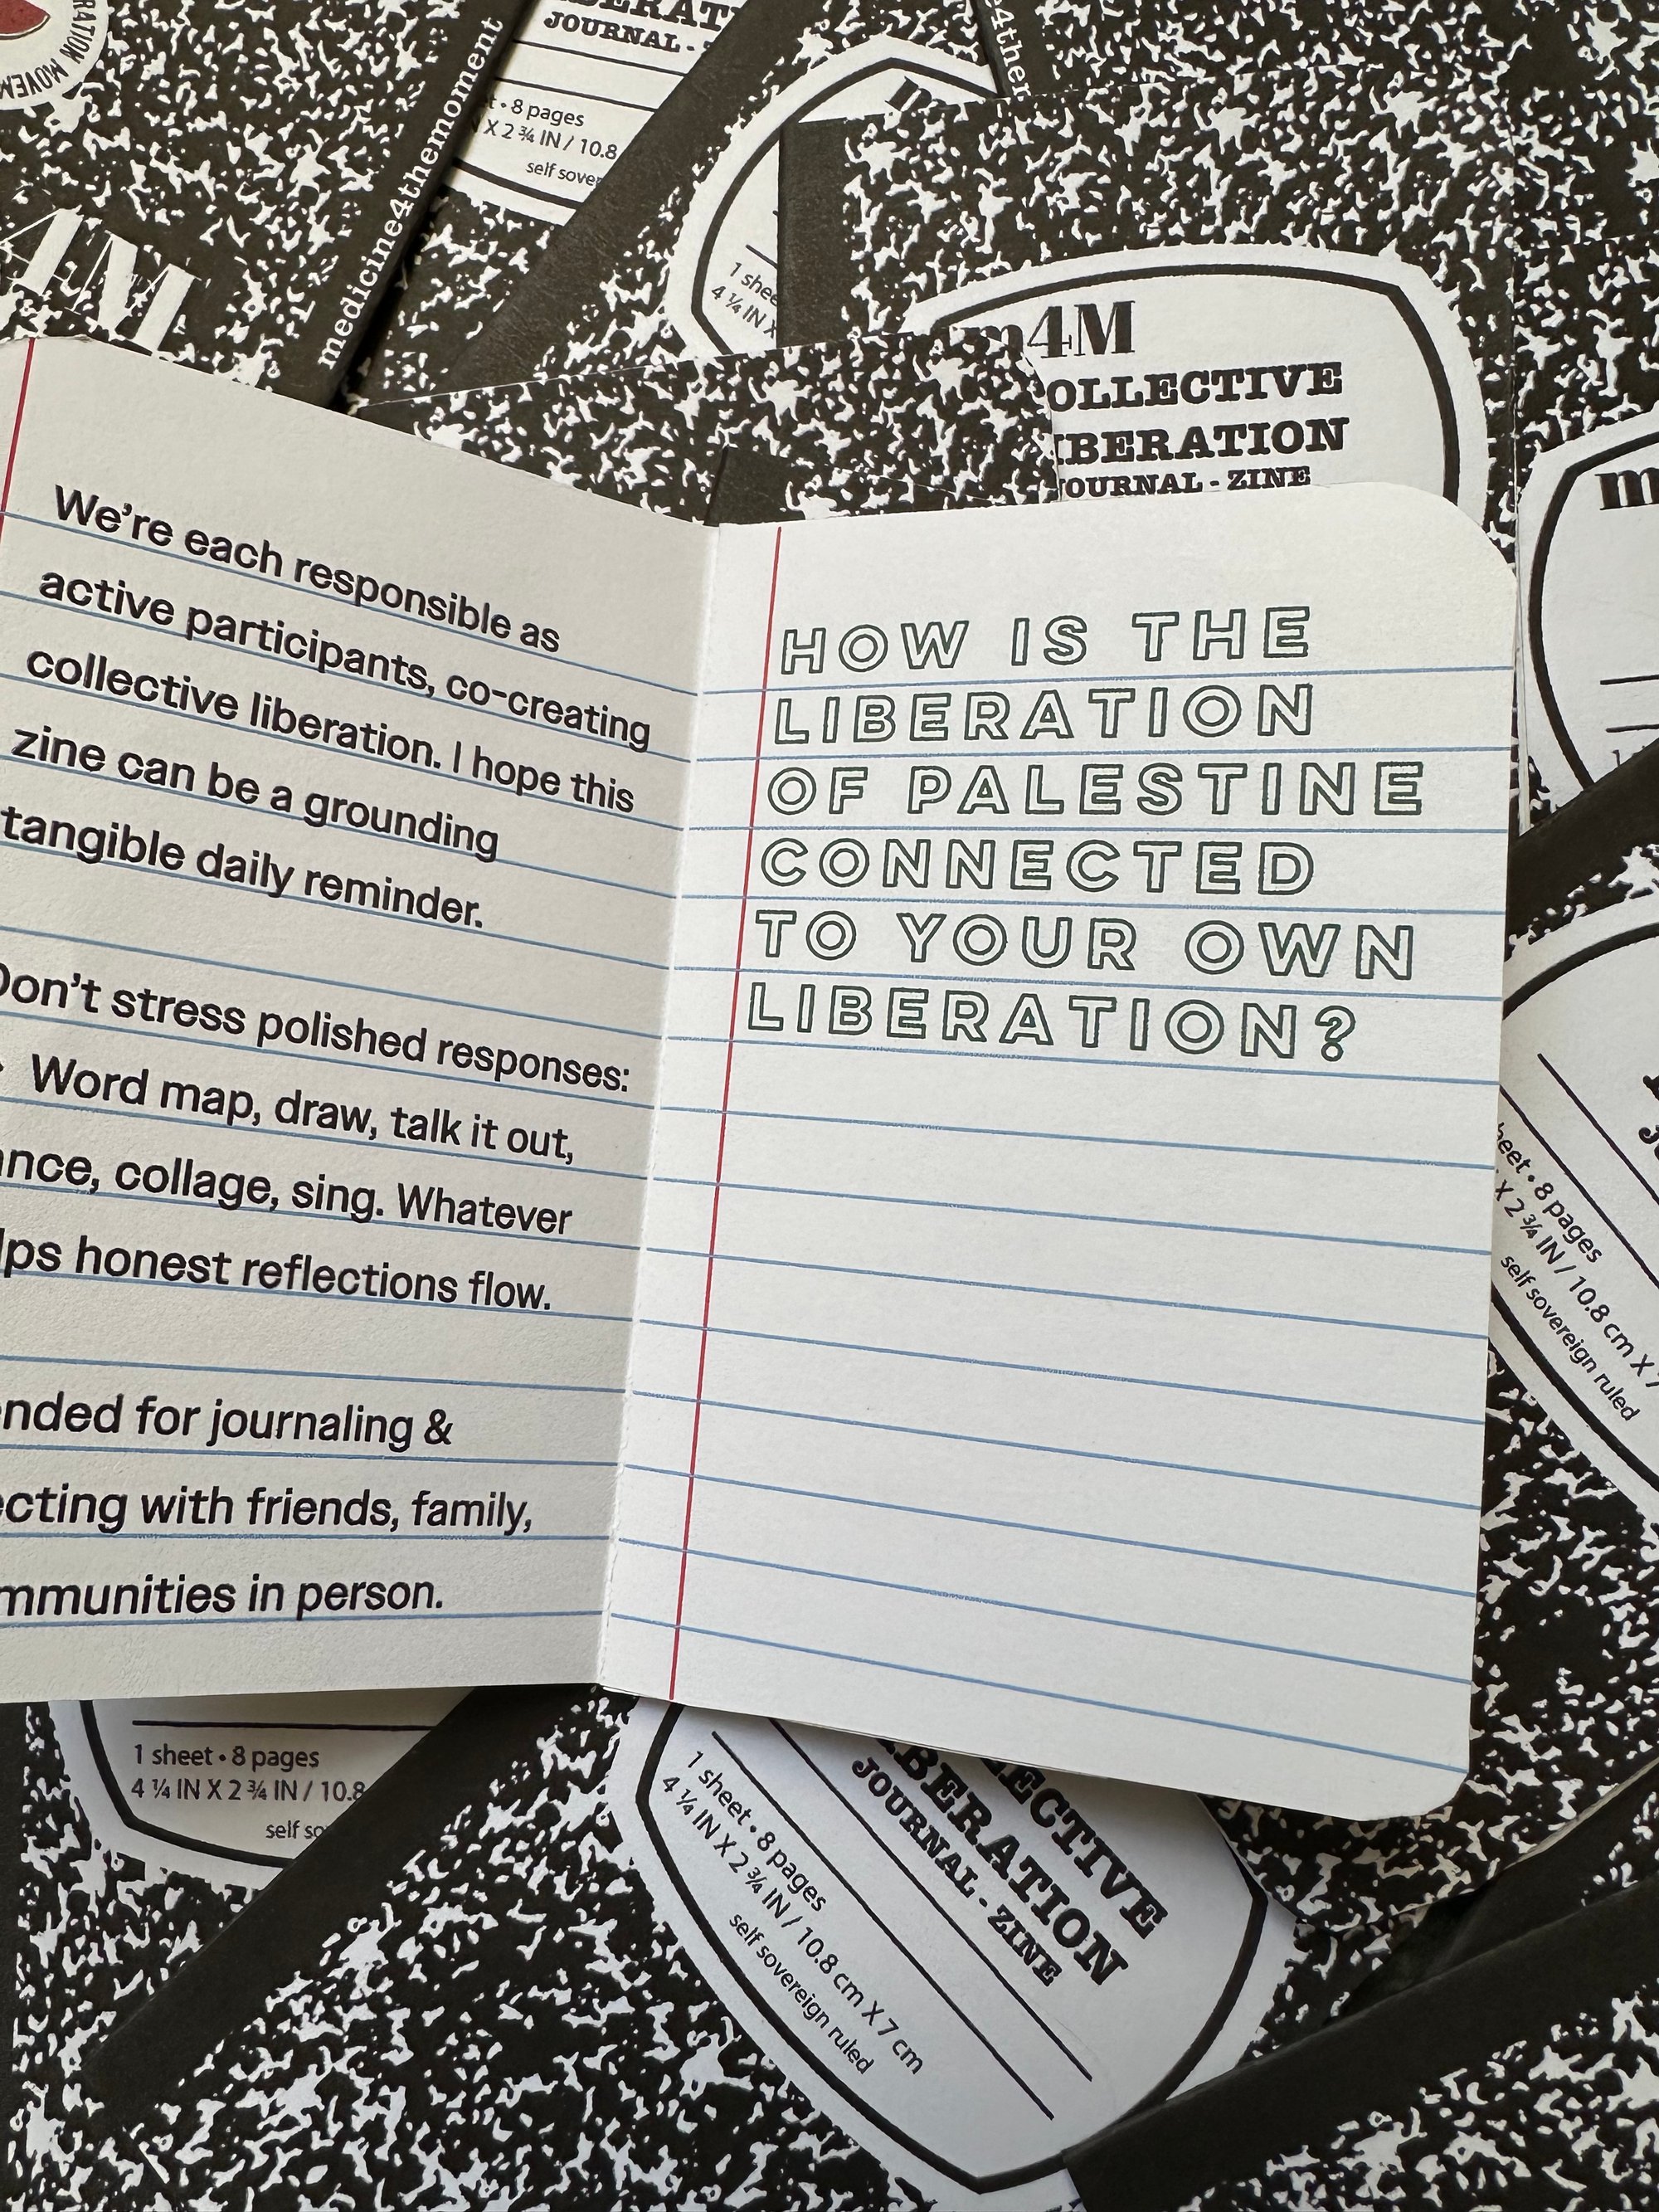 RATION MOVEM
4M
medicine4themoment
JOURNAL -
8 pages
X 2 ¾ IN / 10.8
self sover
1 shee
4 ¼ IN X
m4M
OLLECTIVE
IBERATION
JOURNAL - ZINE
We're each responsible as
active participants, co-creating
collective liberation. I hope this
zine can be a grounding
tangible daily reminder.
Don't stress polished responses:
Word map, draw, talk it out,
ance, collage, sing. Whatever
lps honest reflections flow.
nded for journaling &
ecting with friends, family,
mmunities in person.
HOW IS THE
LIBERATION
OF PALESTINE
CONNECTED
TO YOUR OWN
LIBERATION?
heet • 8 pages
X 2 ¾ IN / 10.8 cm X 7
self sovereign ruled
1 sheet • 8 pages
4 ¼ IN X 2 ¾ IN / 10.8
self so
ECTIVE
BERATION
JOURNAL - ZINE
1 sheet • 8 pages
4 ¼ IN X 2 ¾ IN / 10.8 cm X 7 cm
self sovereign ruled